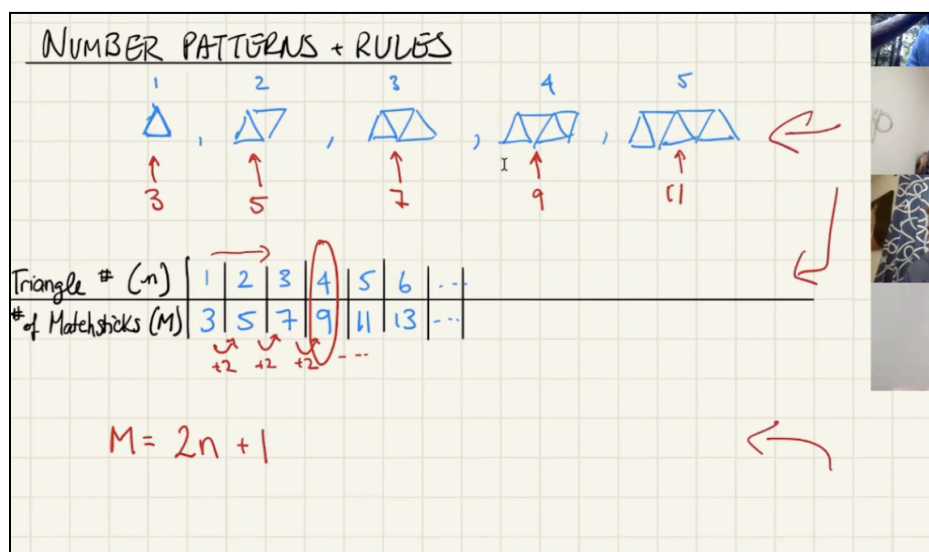 NUMBER PATTERNS + RULES
1 2 3 4 5
, , , ,
3 5 7 9 11
Triangle # (n) 1 2 3 4 5 6 ...
# of Matchsticks (M) 3 5 7 9 11 13 ...
+2 +2 +2 ...
M = 2n + 1